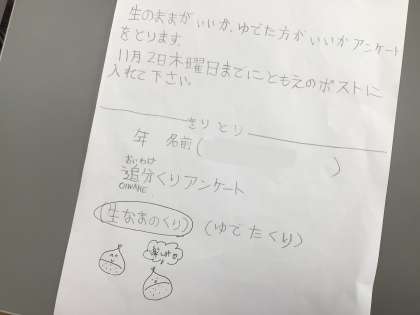 生のままがいいか、ゆでた方がいいかアンケート
をとります。
11月2日木曜日までにともえのポストに
入れて下さい。
きりとり
年 名前( )
おいわけ
追分くりアンケート
OIWAKE
(生なまのくり) (ゆでたくり)